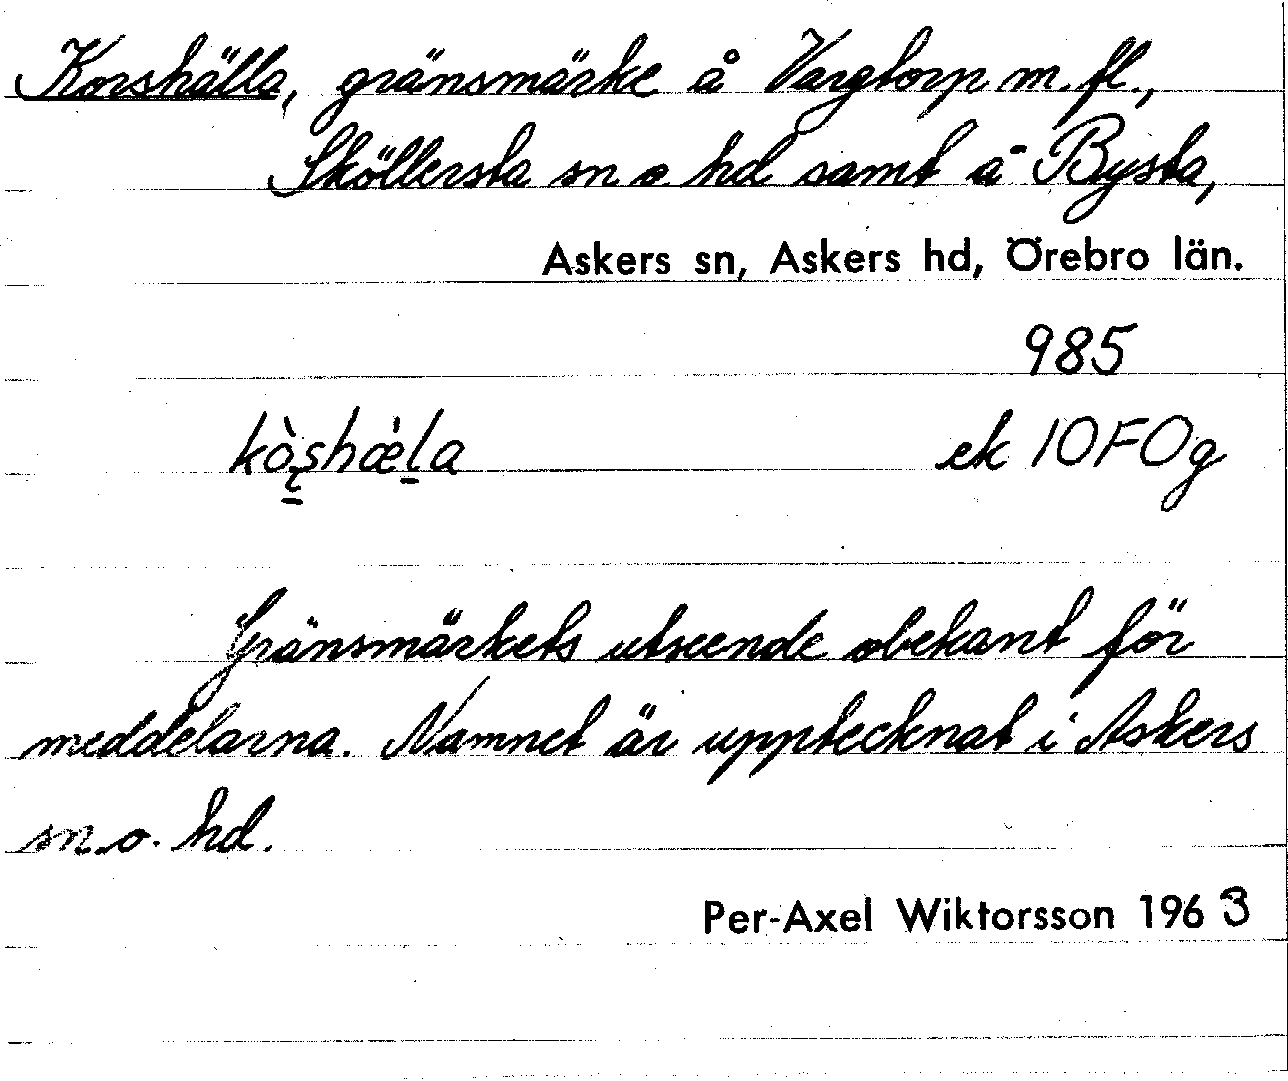 Korshälla, gränsmärke å Vargtorp m. fl.,
Sköllersta sn o. hd samt å Bysta,
Askers sn, Askers hd, Örebro län.
985
kò̱ʂhæ̀ḻa ek 10FOg
Gränsmärkets utseende obekant för
meddelarna. Namnet är upptecknat i Askers
sn. o. hd.
Per-Axel Wiktorsson 1963